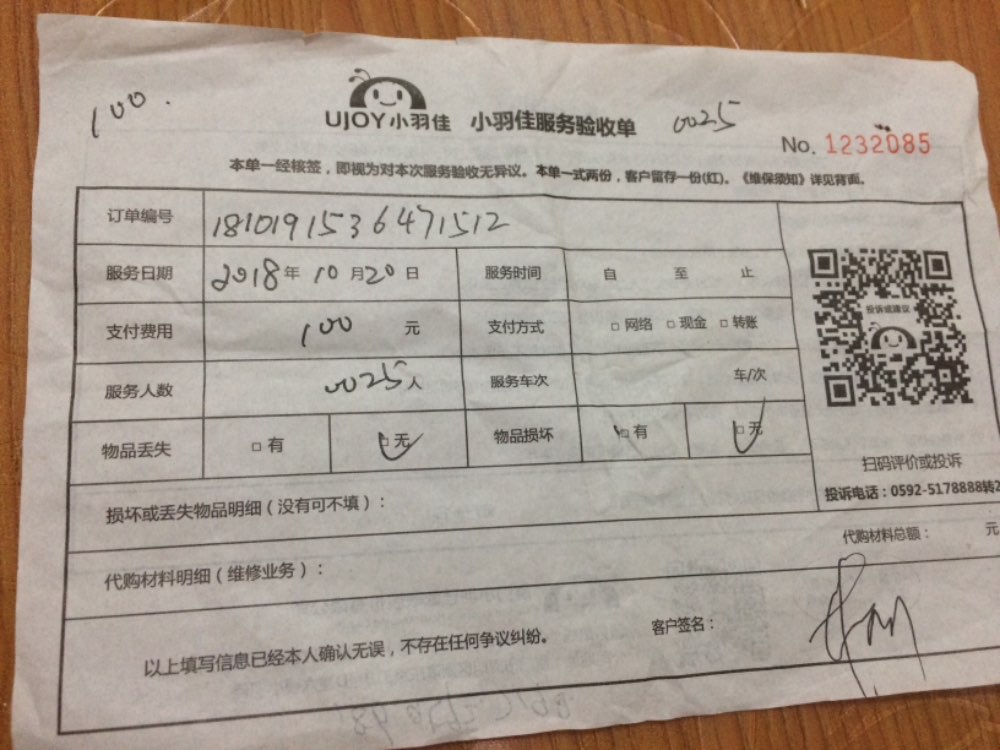 100.
UJOY小羽佳 小羽佳服务验收单 0025
No. 1232085
本单一经核签，即视为对本次服务验收无异议。本单一式两份，客户留存一份(红)。《维保须知》详见背面。
订单编号 1810191536471512
服务日期 2018年10月20日 服务时间 自 至 止
投诉或建议
支付费用 100 元 支付方式 □ 网络 □ 现金 □ 转账
服务人数 0025人 服务车次 车/次
物品丢失 □ 有 □ 无 物品损坏 □ 有 □ 无
扫码评价或投诉
投诉电话：0592-5178888转2
损坏或丢失物品明细（没有可不填）：
代购材料总额： 元
代购材料明细（维修业务）：
以上填写信息已经本人确认无误，不存在任何争议纠纷。 客户签名：